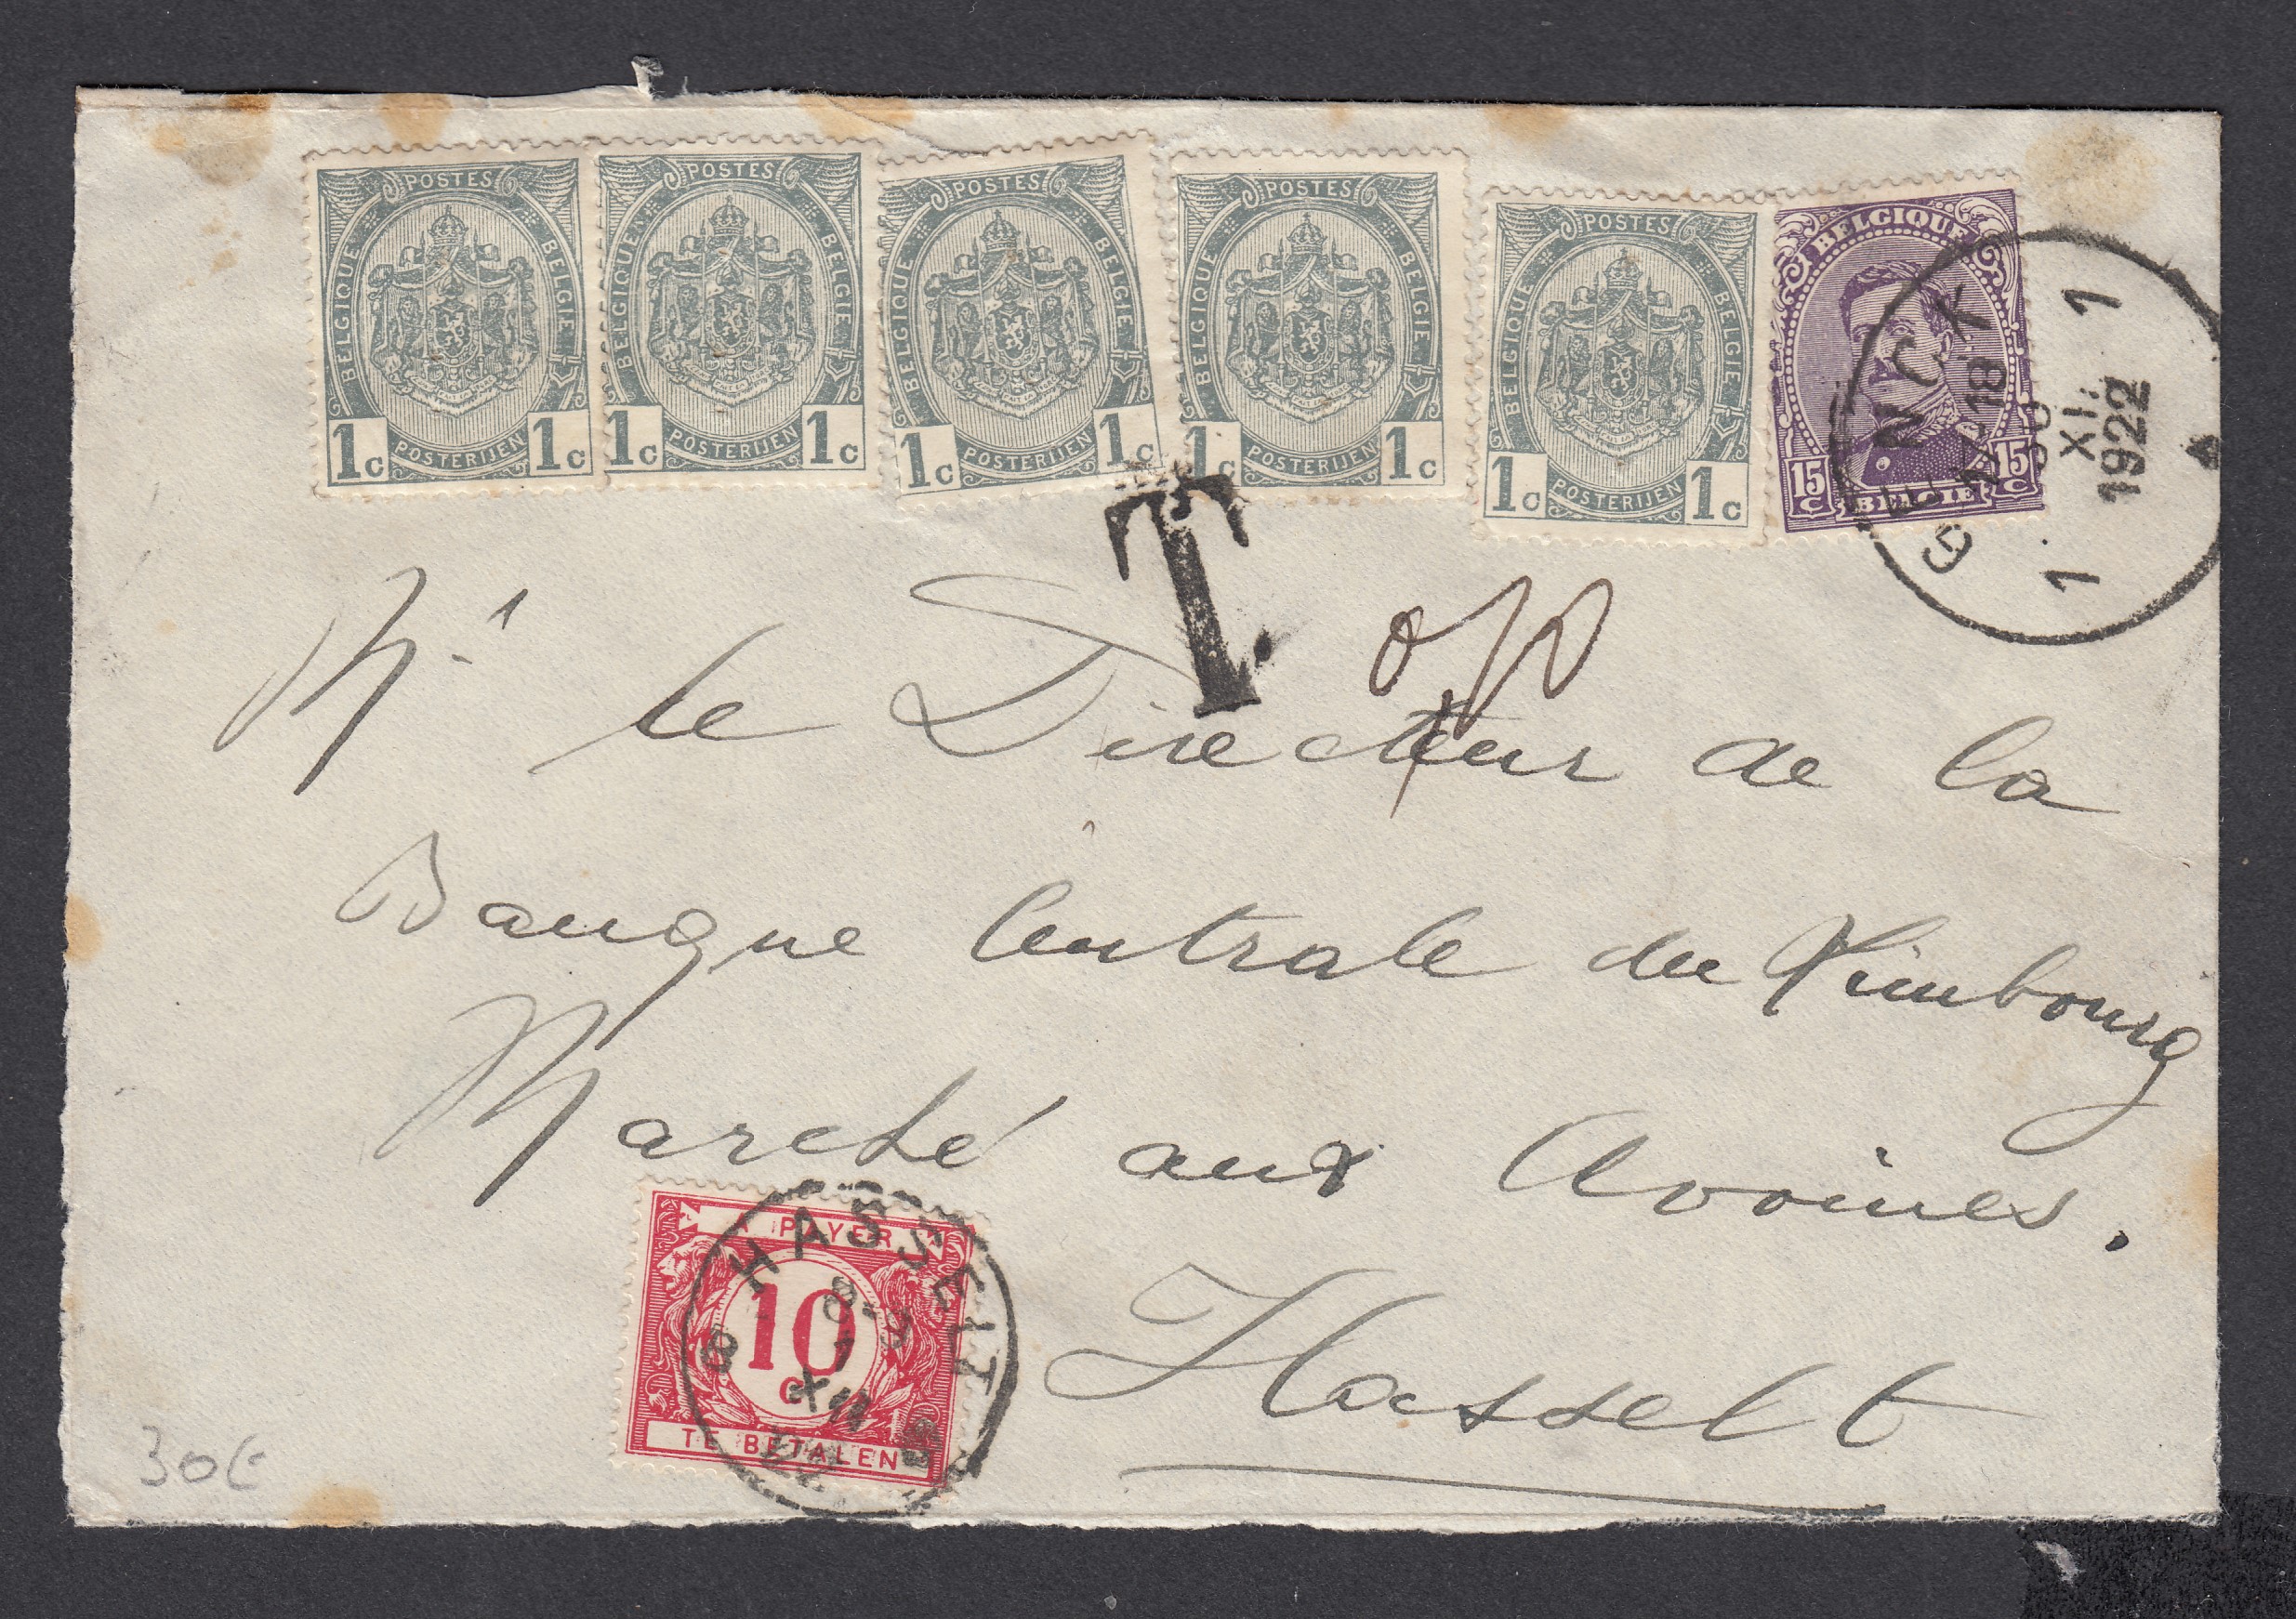 POSTES
BELGIQUE BELGIE
1c POSTERIJEN 1c
POSTES
BELGIQUE BELGIE
1c POSTERIJEN 1c
POSTES
BELGIQUE BELGIE
1c POSTERIJEN 1c
POSTES
BELGIQUE BELGIE
1c 1c
POSTES
BELGIQUE BELGIE
1c POSTERIJEN 1c
BELGIQUE
15c BELGIE 15c
GENCK
1 1
18
30
XI
1922
T
Mr le Directeur de la
Banque Centrale du Limbourg
Marché aux Avoines.
Hasselt
A PAYER
10
C
TE BETALEN
HASSELT
8
30€